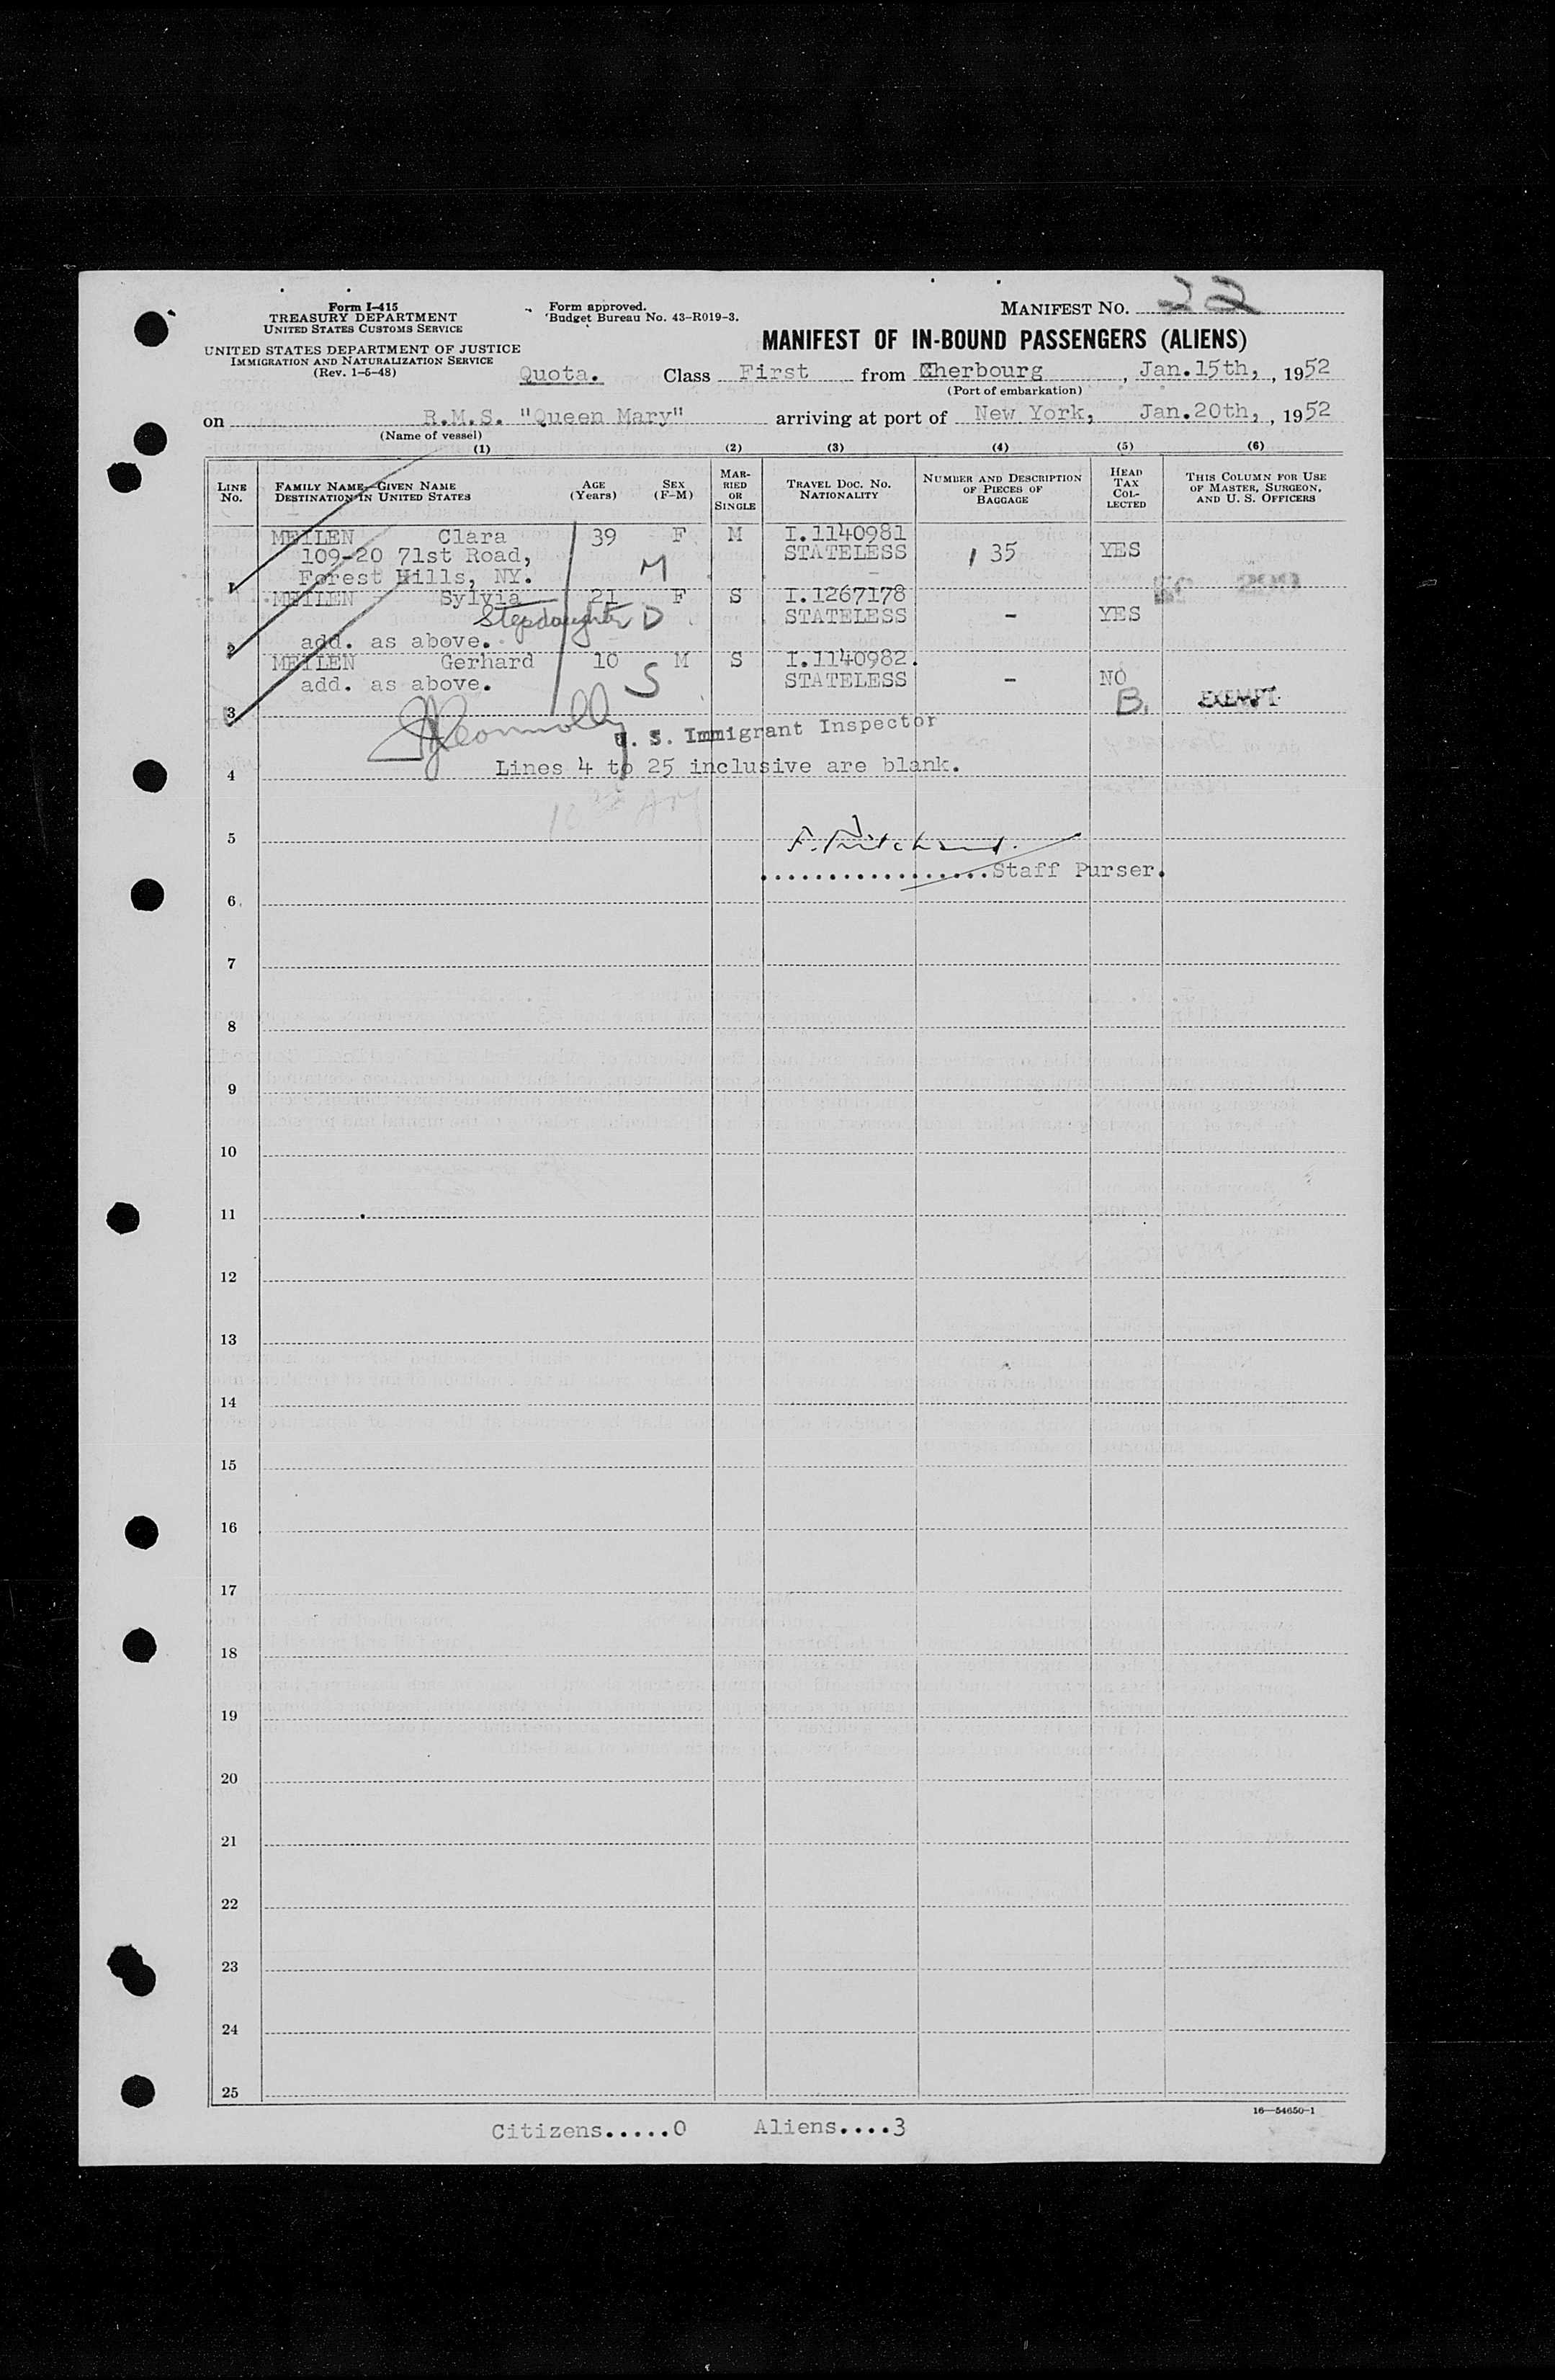 Form I-415
TREASURY DEPARTMENT
UNITED STATES CUSTOMS SERVICE
UNITED STATES DEPARTMENT OF JUSTICE
IMMIGRATION AND NATURALIZATION SERVICE
(Rev. 1-5-48)
Form approved.
Budget Bureau No. 43-R019-3.
MANIFEST NO. 22
MANIFEST OF IN-BOUND PASSENGERS (ALIENS)
Quota. Class First from Cherbourg, Jan.15th, , 1952
(Port of embarkation)
on R.M.S. "Queen Mary" arriving at port of New York, Jan.20th, , 1952
(Name of vessel)
(1) (2) (3) (4) (5) (6)
LINE NO. FAMILY NAME—GIVEN NAME DESTINATION IN UNITED STATES AGE (Years) SEX (F-M) MARRIED OR SINGLE TRAVEL DOC. NO. NATIONALITY NUMBER AND DESCRIPTION OF PIECES OF BAGGAGE HEAD TAX COLLECTED THIS COLUMN FOR USE OF MASTER, SURGEON, AND U. S. OFFICERS
MEILEN Clara 39 F M I.1140981
109-20 71st Road, STATELESS 35 YES
Forest Hills, NY. M
1
MEILEN Sylvia 21 F S I.1267178
Stepdaughter D STATELESS - YES
2 add. as above.
MEILEN Gerhard 10 M S I.1140982.
add. as above. S STATELESS - NO
3 B. EXEMPT
Connolly U. S. Immigrant Inspector
4 Lines 4 to 25 inclusive are blank.
10 AM
5 F. Pritchard.
..................Staff Purser.
6
7
8
9
10
11
12
13
14
15
16
17
18
19
20
21
22
23
24
25
16—54650-1
Citizens.....0 Aliens....3